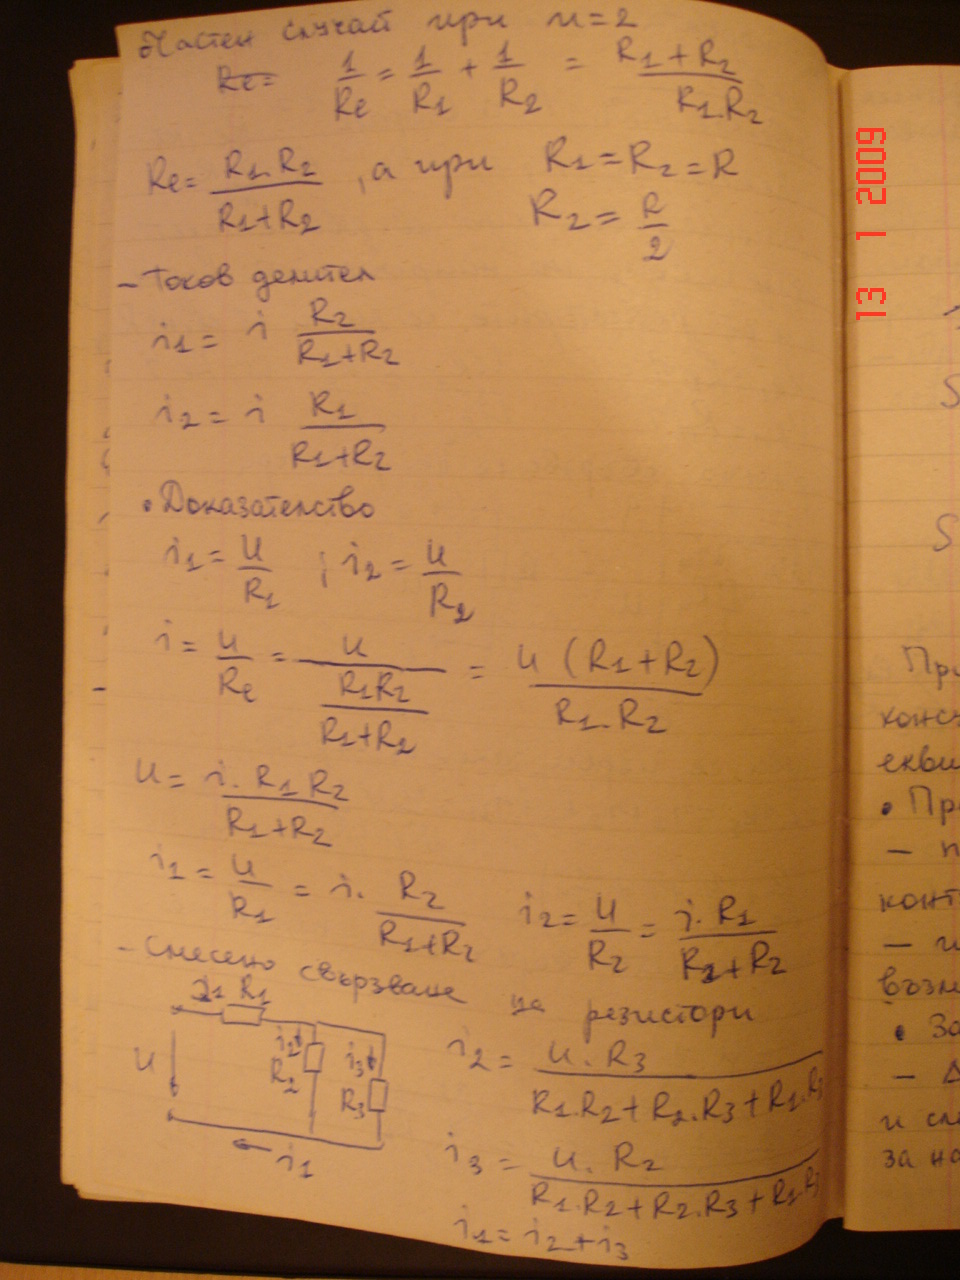 Частен случай при n=2
Re= 1/Re = 1/R1 + 1/R2 = R1+R2/R1.R2
Re= R1.R2/R1+R2 , а при R1=R2=R
R2= R/2
- Токов делител
i1= i R2/R1+R2
i2= i R1/R1+R2
• Доказателство
i1= u/R1 ; i2= u/R2
i= u/Re = u/(R1R2/R1+R2) = u (R1+R2)/R1.R2
u= i.R1R2/R1+R2
i1= u/R1 = i. R2/R1+R2 i2= u/R2 = i.R1/R1+R2
- Смесено свързване на резистори
i1 R1
u
i2
R2
i3
R3
i1
i2= u.R3/R1.R2+R2.R3+R1.R3
i3= u.R2/R1.R2+R2.R3+R1.R3
i1= i2+i3
13 1 2009
S
S
При
конс
екви
• Пр
- п
конт
- и
възн
• За
-
и сл
за на